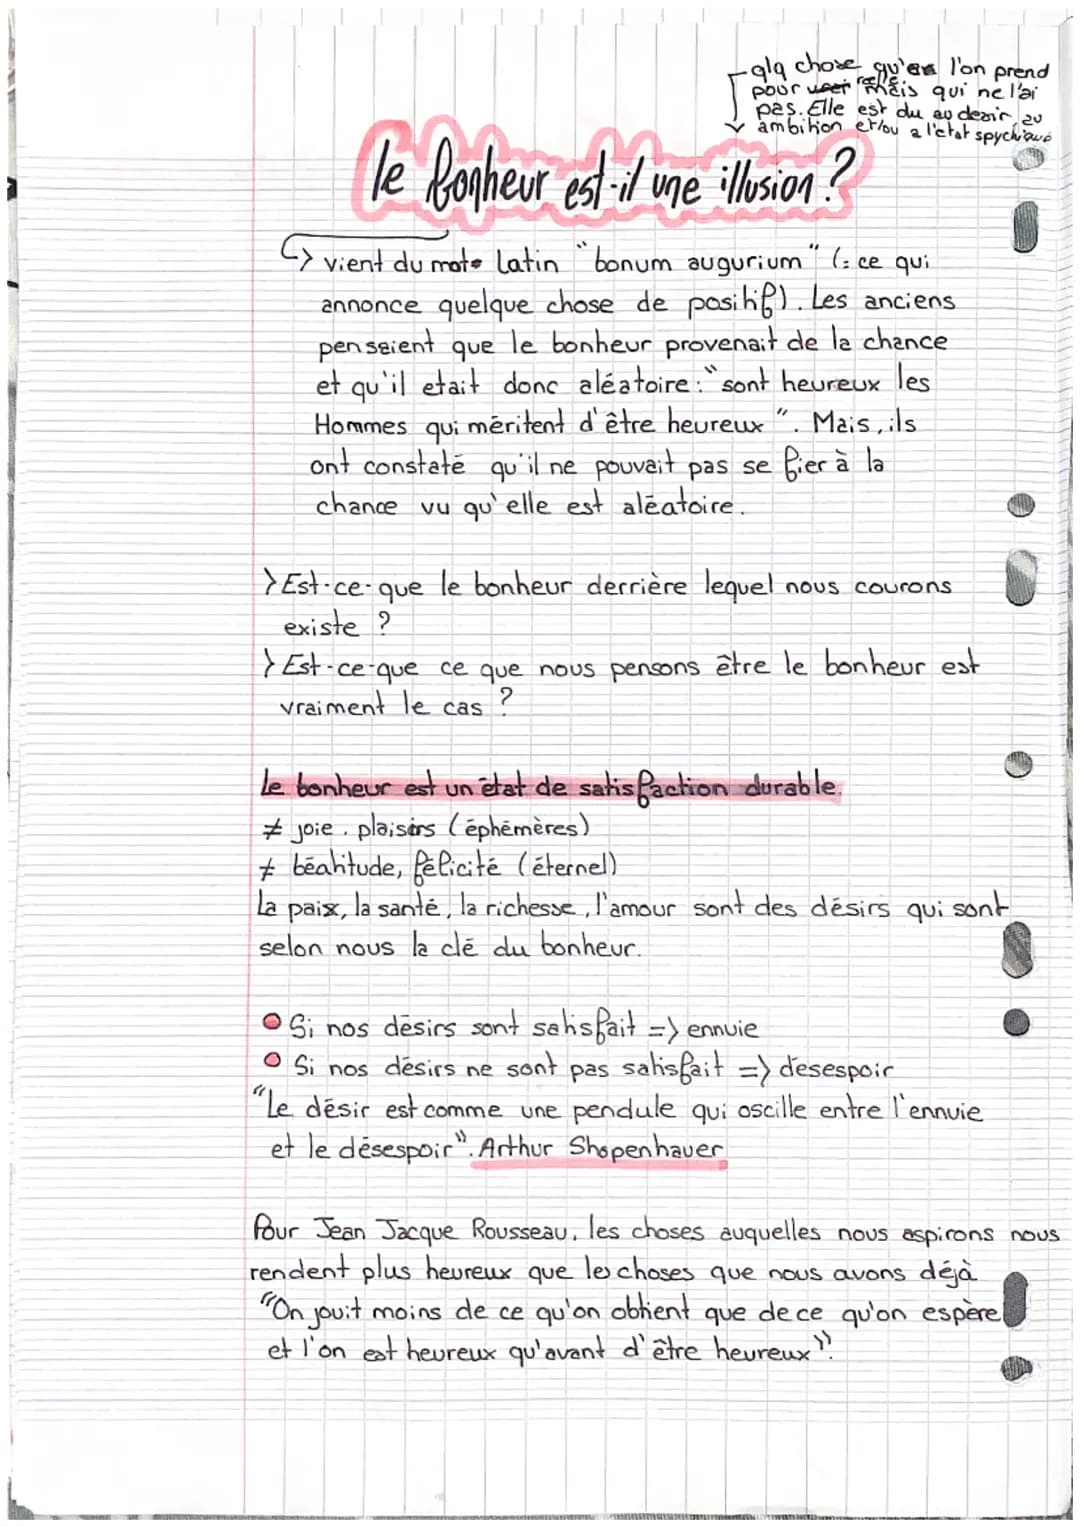 qlq chose qu'en l'on prend
pour réelle mais qui ne l'ai
pas. Elle est du au desir, au
ambition et/ou a l'etat spychique
le bonheur est-il une illusion ?
vient du mot Latin "bonum augurium" (= ce qui
annonce quelque chose de positif). Les anciens
pensaient que le bonheur provenait de la chance
et qu'il etait donc aléatoire : "sont heureux les
Hommes qui méritent d'être heureux". Mais, ils
ont constaté qu'il ne pouvait pas se fier à la
chance vu qu'elle est aléatoire.
> Est-ce-que le bonheur derrière lequel nous courons
existe ?
> Est-ce-que ce que nous pensons être le bonheur est
vraiment le cas ?
Le bonheur est un état de satisfaction durable.
≠ joie. plaisirs (éphémères)
≠ béatitude, félicité (éternel)
La paix, la santé, la richesse, l'amour sont des désirs qui sont
selon nous la clé du bonheur.
Si nos désirs sont satisfait => ennuie
Si nos désirs ne sont pas satisfait => desespoir
"Le désir est comme une pendule qui oscille entre l'ennuie
et le désespoir". Arthur Shopenhauer
Pour Jean Jacque Rousseau, les choses auquelles nous aspirons nous
rendent plus heureux que les choses que nous avons déjà
"On jouit moins de ce qu'on obtient que de ce qu'on espère
et l'on est heureux qu'avant d'être heureux".